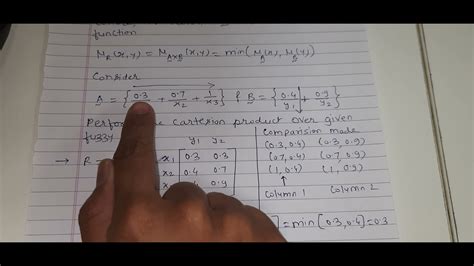 function
M_R(x,y) = M_{A×B}(x,y) = min(M_A(x), M_B(y))
Consider
A = {0.3 + 0.7/x2 + 1/x3} & B = {0.4/y1 + 0.9/y2}
Perform cartesion product over given
fuzzy
y1 y2
→ R x1 0.3 0.3
x2 0.4 0.7
0.4 0.9
Comparision made
(0.3, 0.4) (0.3, 0.9)
(0.7, 0.4) (0.7, 0.9)
(1, 0.4) (1, 0.9)
Column 1 Column 2
] = min[0.3, 0.4] = 0.3